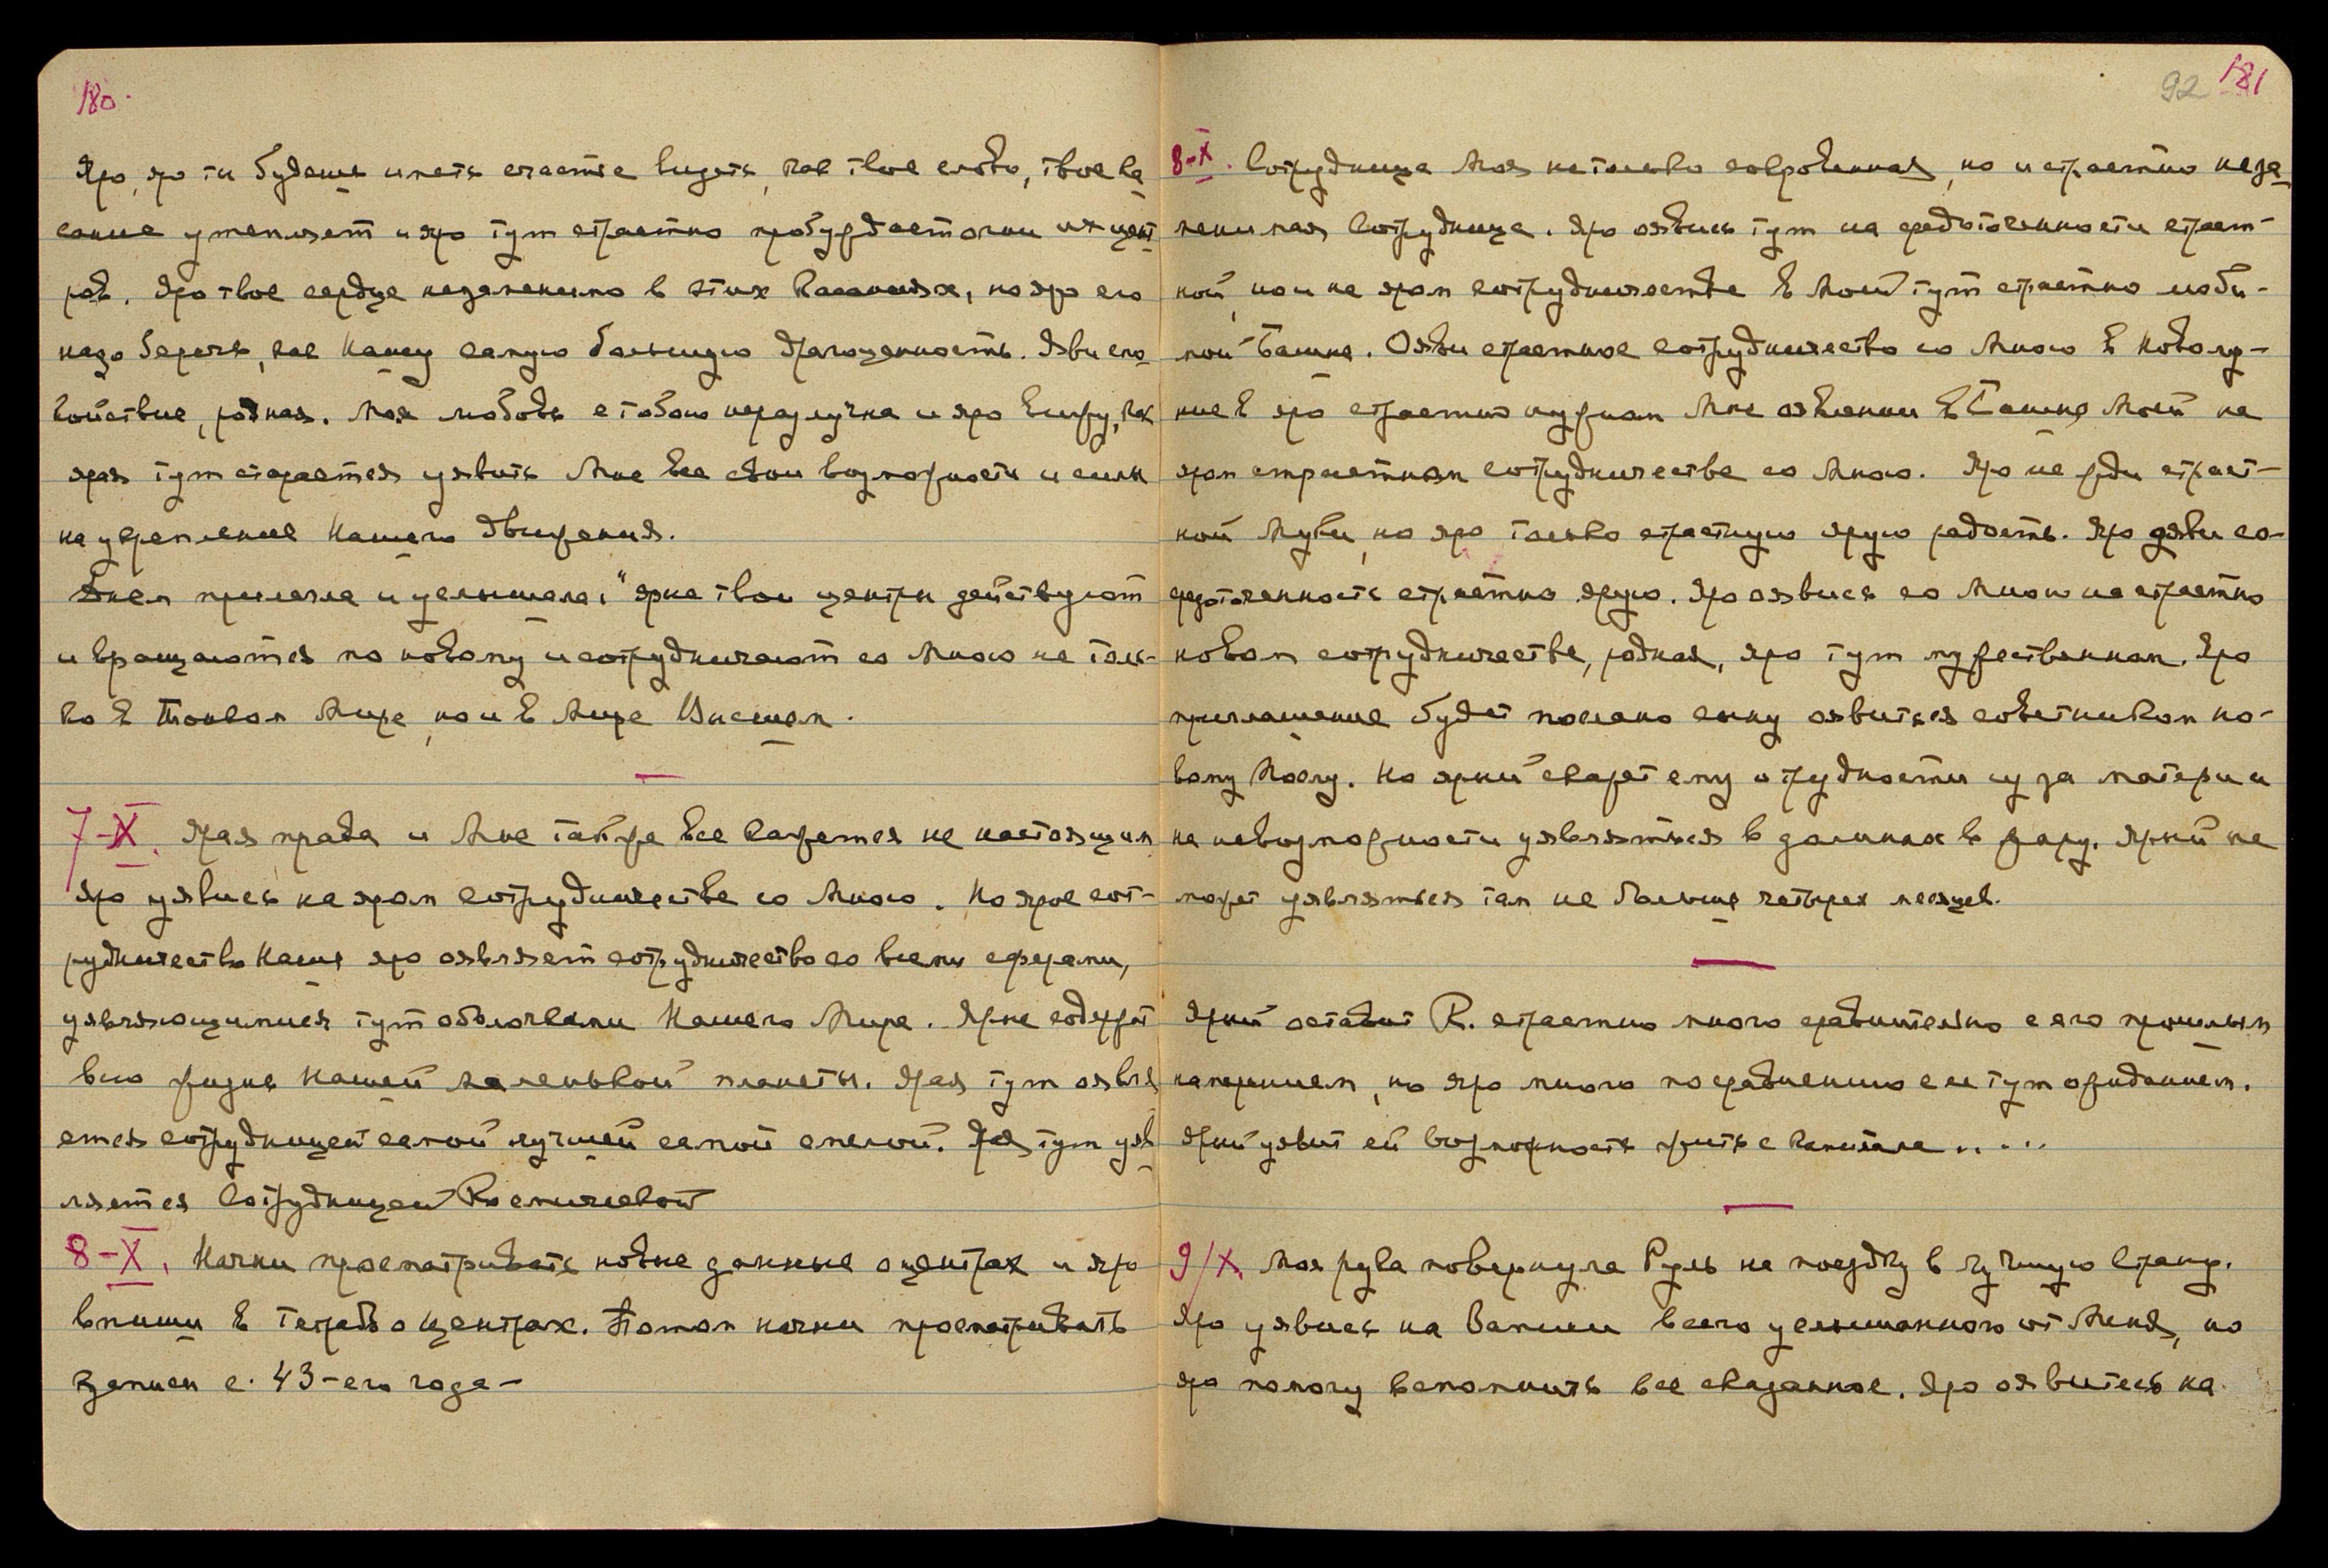 180.
Яро, яро ты будешь иметь счастье видеть, как твое слово, твое ка
сание утешает и яро тут страстно пробуждает огни их цент
ров. Яро твое сердце незаменимо в этих касаниях, но яро его
надо беречь, как Нашу самую большую драгоценность. Яви спо
койствие, родная. Моя любовь с тобою неразлучна и яро вижу, как
ярая тут старается уявить Мне все свои возможности и силы
на укрепление Нашего движения.
Днем прилегла и услышала: "яркие твои центры действуют
и вращаются по новому и сотрудничают со Мною не толь-
ко в Тонком Мире, но и в Мире Высшем.
7-X. Ярая права и Мне также все кажется не настоящим
Яро уявись на яром сотрудничестве со Мною. Но ярое сот-
рудничество Наше яро оявляет сотрудничество со всеми сферами,
уявляющимися тут оболочками Нашего Мира. Ярые содержат
всю жизнь Нашей маленькой планеты. Ярая тут оявля
ется сотрудницей самой лучшей самой смелой. Ярая тут уяв
ляется Сотрудницей Космической
8-X. Начни просматривать новые данные о центрах и яро
впиши в тетрадь о центрах. Потом начни просматривать
записи с 43-его года-
92 181
8-X. Сотрудница Моя не только сокровенная, но и страстно неза
менимая Сотрудница. Яро оявись тут на средоточенности страст-
ной, но и на яром сотрудничестве в Моей тут страстно люби-
мой Башне. Ояви страстное сотрудничество со Мною в Новолу-
ние в яро страстно нужном Мне оявлении в Башне Моей на
яром страстном сотрудничестве со Мною. Яро не жди страст-
ной Муки, но яро только страстную ярую радость. Яро уяви со-
средоточенность страстно ярую. Яро оявись со Мною на страстно
новом сотрудничестве, родная, яро тут мужественном. Яро
приглашение будет послано сыну оявиться советником но-
вому Послу. Но ярый скажет ему о трудности из за матери и
на невозможности уявляться в долинах в жару. Ярый не
может уявляться там не больше четырех месяцев.
Ярый оставит R. страстно много сравнительно с его прошлым
намерением, но яро много по сравнению с ея тут ожиданием.
Ярый уявит ей возможность жить с капитала.....
9/X. Моя рука повернула Руль на поездку в лучшую Страну.
Яро уявись на Записи всего услышанного от Меня, но
яро помогу вспомнить все сказанное. Яро оявитесь на